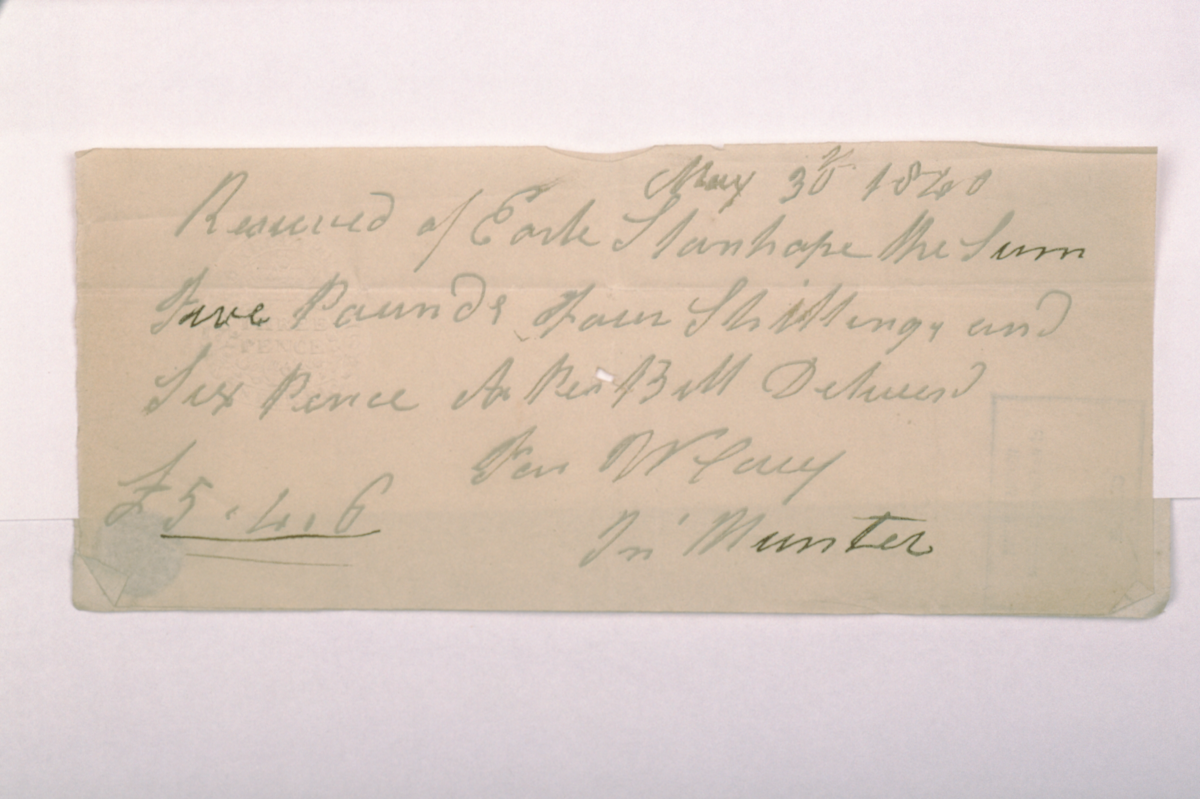 May 30 1840
Received of Earle Stanhope the Sum
Five Pounds Four Shillings and
Six Pence As Per Bill Deliverd
For W Cary
Jn Munter
£5.4.6
PENCE